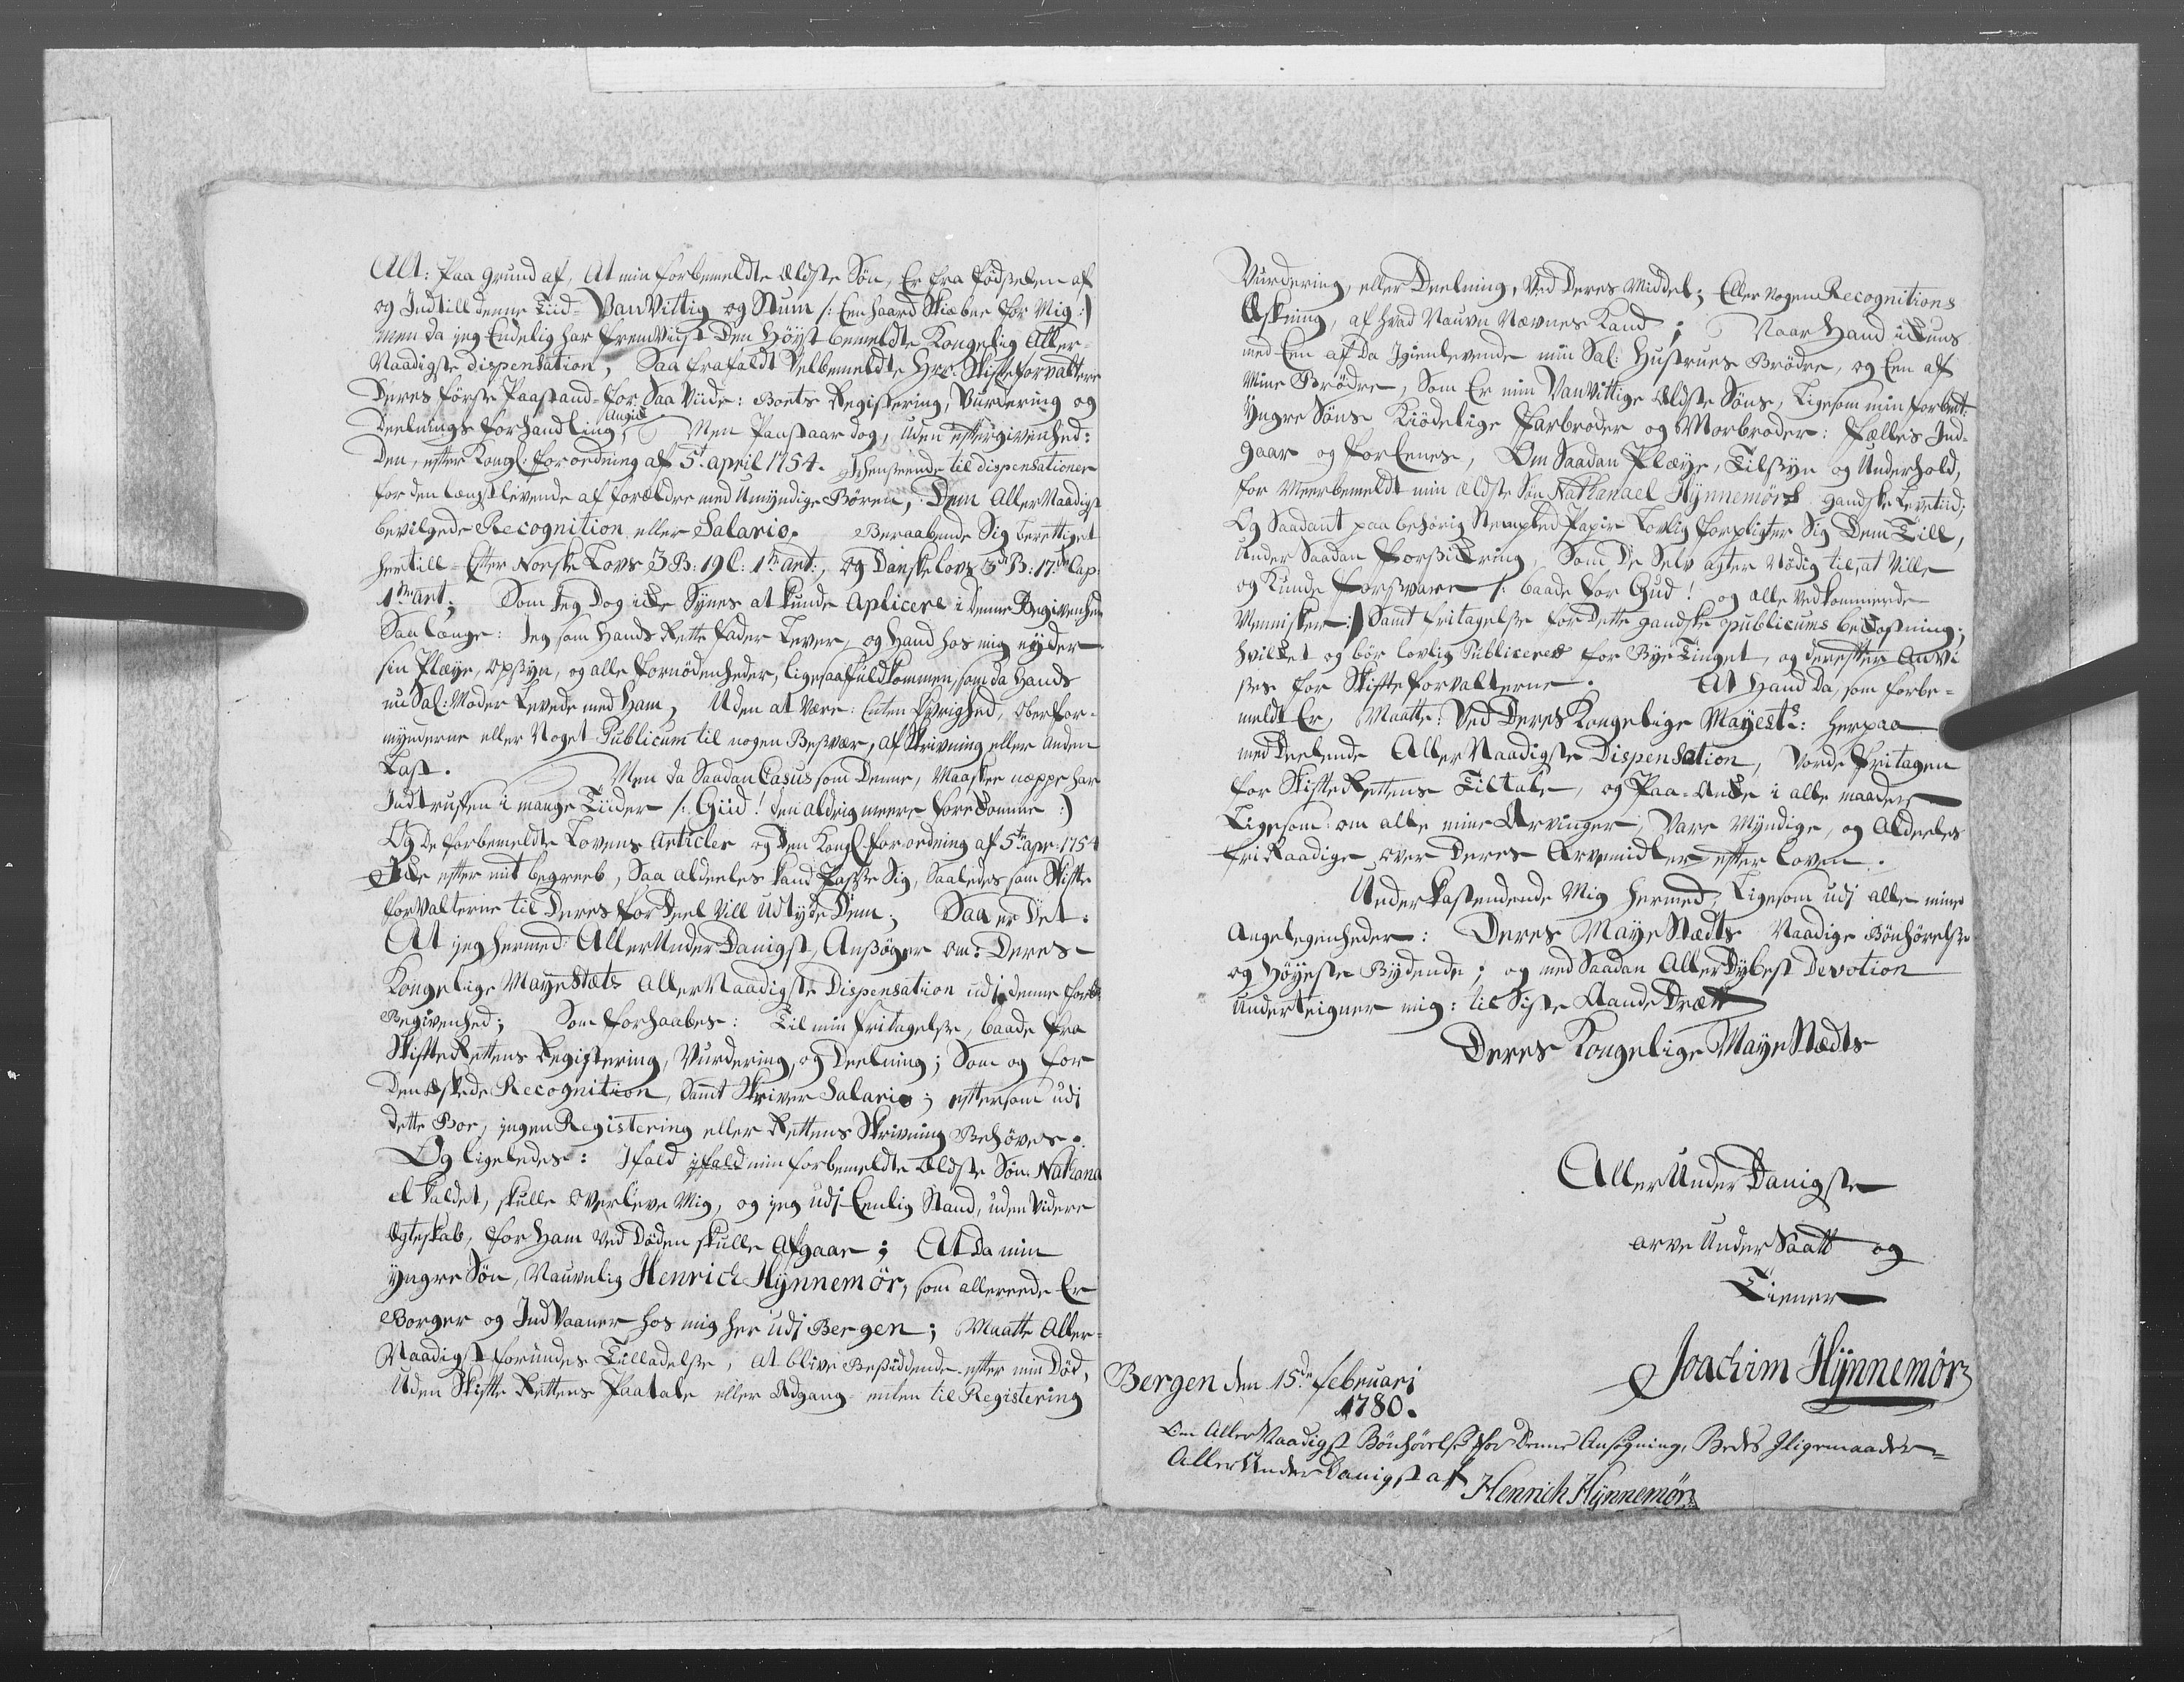 Alt: Paa Grund af, At min forbemeldte Ældste Søn, Er fra fødselen af
og Indtill denne Tiid = VanVittig og Stum /: Een haard Skiæbne for Mig :/
Men da jeg Endelig har fremviist Den Høyst bemeldte Kongelig Aller-
Naadigste Dispensation, Saa frafaldt Velbemeldte Hrr. Skifteforvaltere
Deres første Paastand = for Saa Viide: Boets Registering, Vurdering og
Deelnings forhandling Angik, Men Paastaar dog, Uden eftergivenhed:
Den, efter Kongl: forordning af 5t april 1754. Henseende til dispensationer
for den længstlevende af forældre med Umyndige Børen, Dem AllerNaadigst
bevilgede Recognition eller Salario. Beraabende Sig berettiget
hertill = Efter Norske Lovs 3 B: 19 C: 1te art:, og Danske Lovs 5te B: 17de Cap:
1te art; Som Jeg Dog icke Synes at kunde Aplicere i denne Begivenhed
Saa længe: Jeg som Hands Rette fader Lever, og Hand hos mig nyder
sin Pleye, Opsyn, og alle fornødenheder, ligesaa fuldkommen, som da Hands
nu Sal: Moder Levede med Ham, Uden at være: Enten Øvrighed, Oberfor-
mynderne eller Noget Publicum til nogen Besvær, af Skrivning eller Anden
Last. Men da Saadan Casus som Denne, Maaskee næppe har
Indtruffen i mange Tiider /: Gud! den aldrig meere forekomme :/
Og De forbemeldte Lovens Articler og den Kongl: forordning af 5te apr: 1754
Icke efter mit begreeb, Saa aldeeles kand Passe Sig, Saaledes som Skifte
forvalterne til Deres fordeel Vill Udtyde Dem; Saa er Det:
At jeg hermed: AllerUnderDanigst, Ansøger om: Deres
Kongelige MayeStæts AllerNaadigste Dispensation udi denne forbte
Begivenhed; Som forhaabes: Til min fritagelse, baade fra
SkifteRettens Registering, Vurdering, og Deelning; Som og for
Den Æskede Recognition, Samt Skriver Salario; eftersom udi
dette Boe, ingen Registering eller Rettens Skrivning Behøves.
Og ligeledes: Ifald ifald min forbemeldte Ældste Søn Nathana
el kaldet, skulle Overleve Mig, og jeg udi Eenlig Stand, uden Videre
Ægteskab, for Ham Ved Døden skulle Afgaae; At Da min
Yngre Søn, Nauvnlig Henrich Hÿnnemör, som allereede Er
Borger og IndVaaner hos mig her udi Bergen; Maatte Aller-
Naadigst forundes Tilladelse, At blive Besiddende efter min Død,
Uden Skifte Rettens Paatale eller Adgang enten til Registering
Vurdering, eller Deelning, Ved Deres Middel; Eller Nogen Recognitions
Æskning, af hvad Nauvn Nævnes Kand; Naar Hand ickuns
med Een af Da Igienlevende min Sal: Hustrues Brødre, og Een af
Mine Brødre, Som Er min VanVittige Ældste Søns, Ligesom min forbmt:
Yngre Søns Kiødelige Farbroder og Morbroder: Fælles Ind-
gaar og forEenes, Om Saadan Pleye, Tilsyn og Underhold,
for Meerbemeldt min Ældste Søn Nathanael Hÿnnemörs gandske Levetiid;
Og Saadant paa behørig Stempled Papir Lovlig forpligter Sig Dem Till,
Under Saadan Forsickring, Som De Selv agter Nødig til, at Ville
og Kunde forsvare /: baade for Gud! og alle vedkommende
Mennisker :/ Samt fritagelse for Dette gandske publicums bekostning;
hvilket og bør lovlig Publiceres for ByeTinget, og derefter Anvi
ses for Skifteforvalterne. At Hand Da, som forbe-
meldt Er, Maatte: Ved Deres Kongelige Mayests: herpaa
meddeelende AllerNaadigste Dispensation, Vorde fritagen
for SkifteRettens Tiltale, og Paa-Ancke i alle maader
Ligesom om alle mine Arvinger, Vare Myndige, og Aldeeles
friRaadige over Deres Arvemidler efter Loven.
Underkastendende Mig hermed, Ligesom udi alle mine
Angelegenheder: Deres MayeStædts Naadige Bønhørelse
og Høyeste Bydende; og med Saadan AllerDybest Devotion
Underteigner mig: til Siste AandeDrætt
Deres Kongelige MayeStædts
AllerUnderDanigste
arve UnderSaatt og
Tiener
Joachim Hÿnnemör
Bergen den 15de februari
1780.
Om AllerNaadigst Bønhørelse for Denne Ansøgning, Bedes Iligemaader=
AllerUnderdanigst af Henrich Hÿnnemör